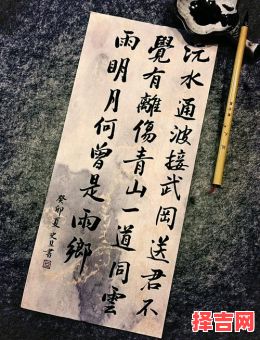 沅水通波接武岡送君不
覺有離傷青山一道同雲
雨明月何曾是兩鄉
癸卯夏文旦書
择吉网
zejiwang.com